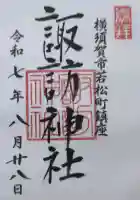 横須賀市若松町鎮座
諏訪神社
令和七年八月廿八日